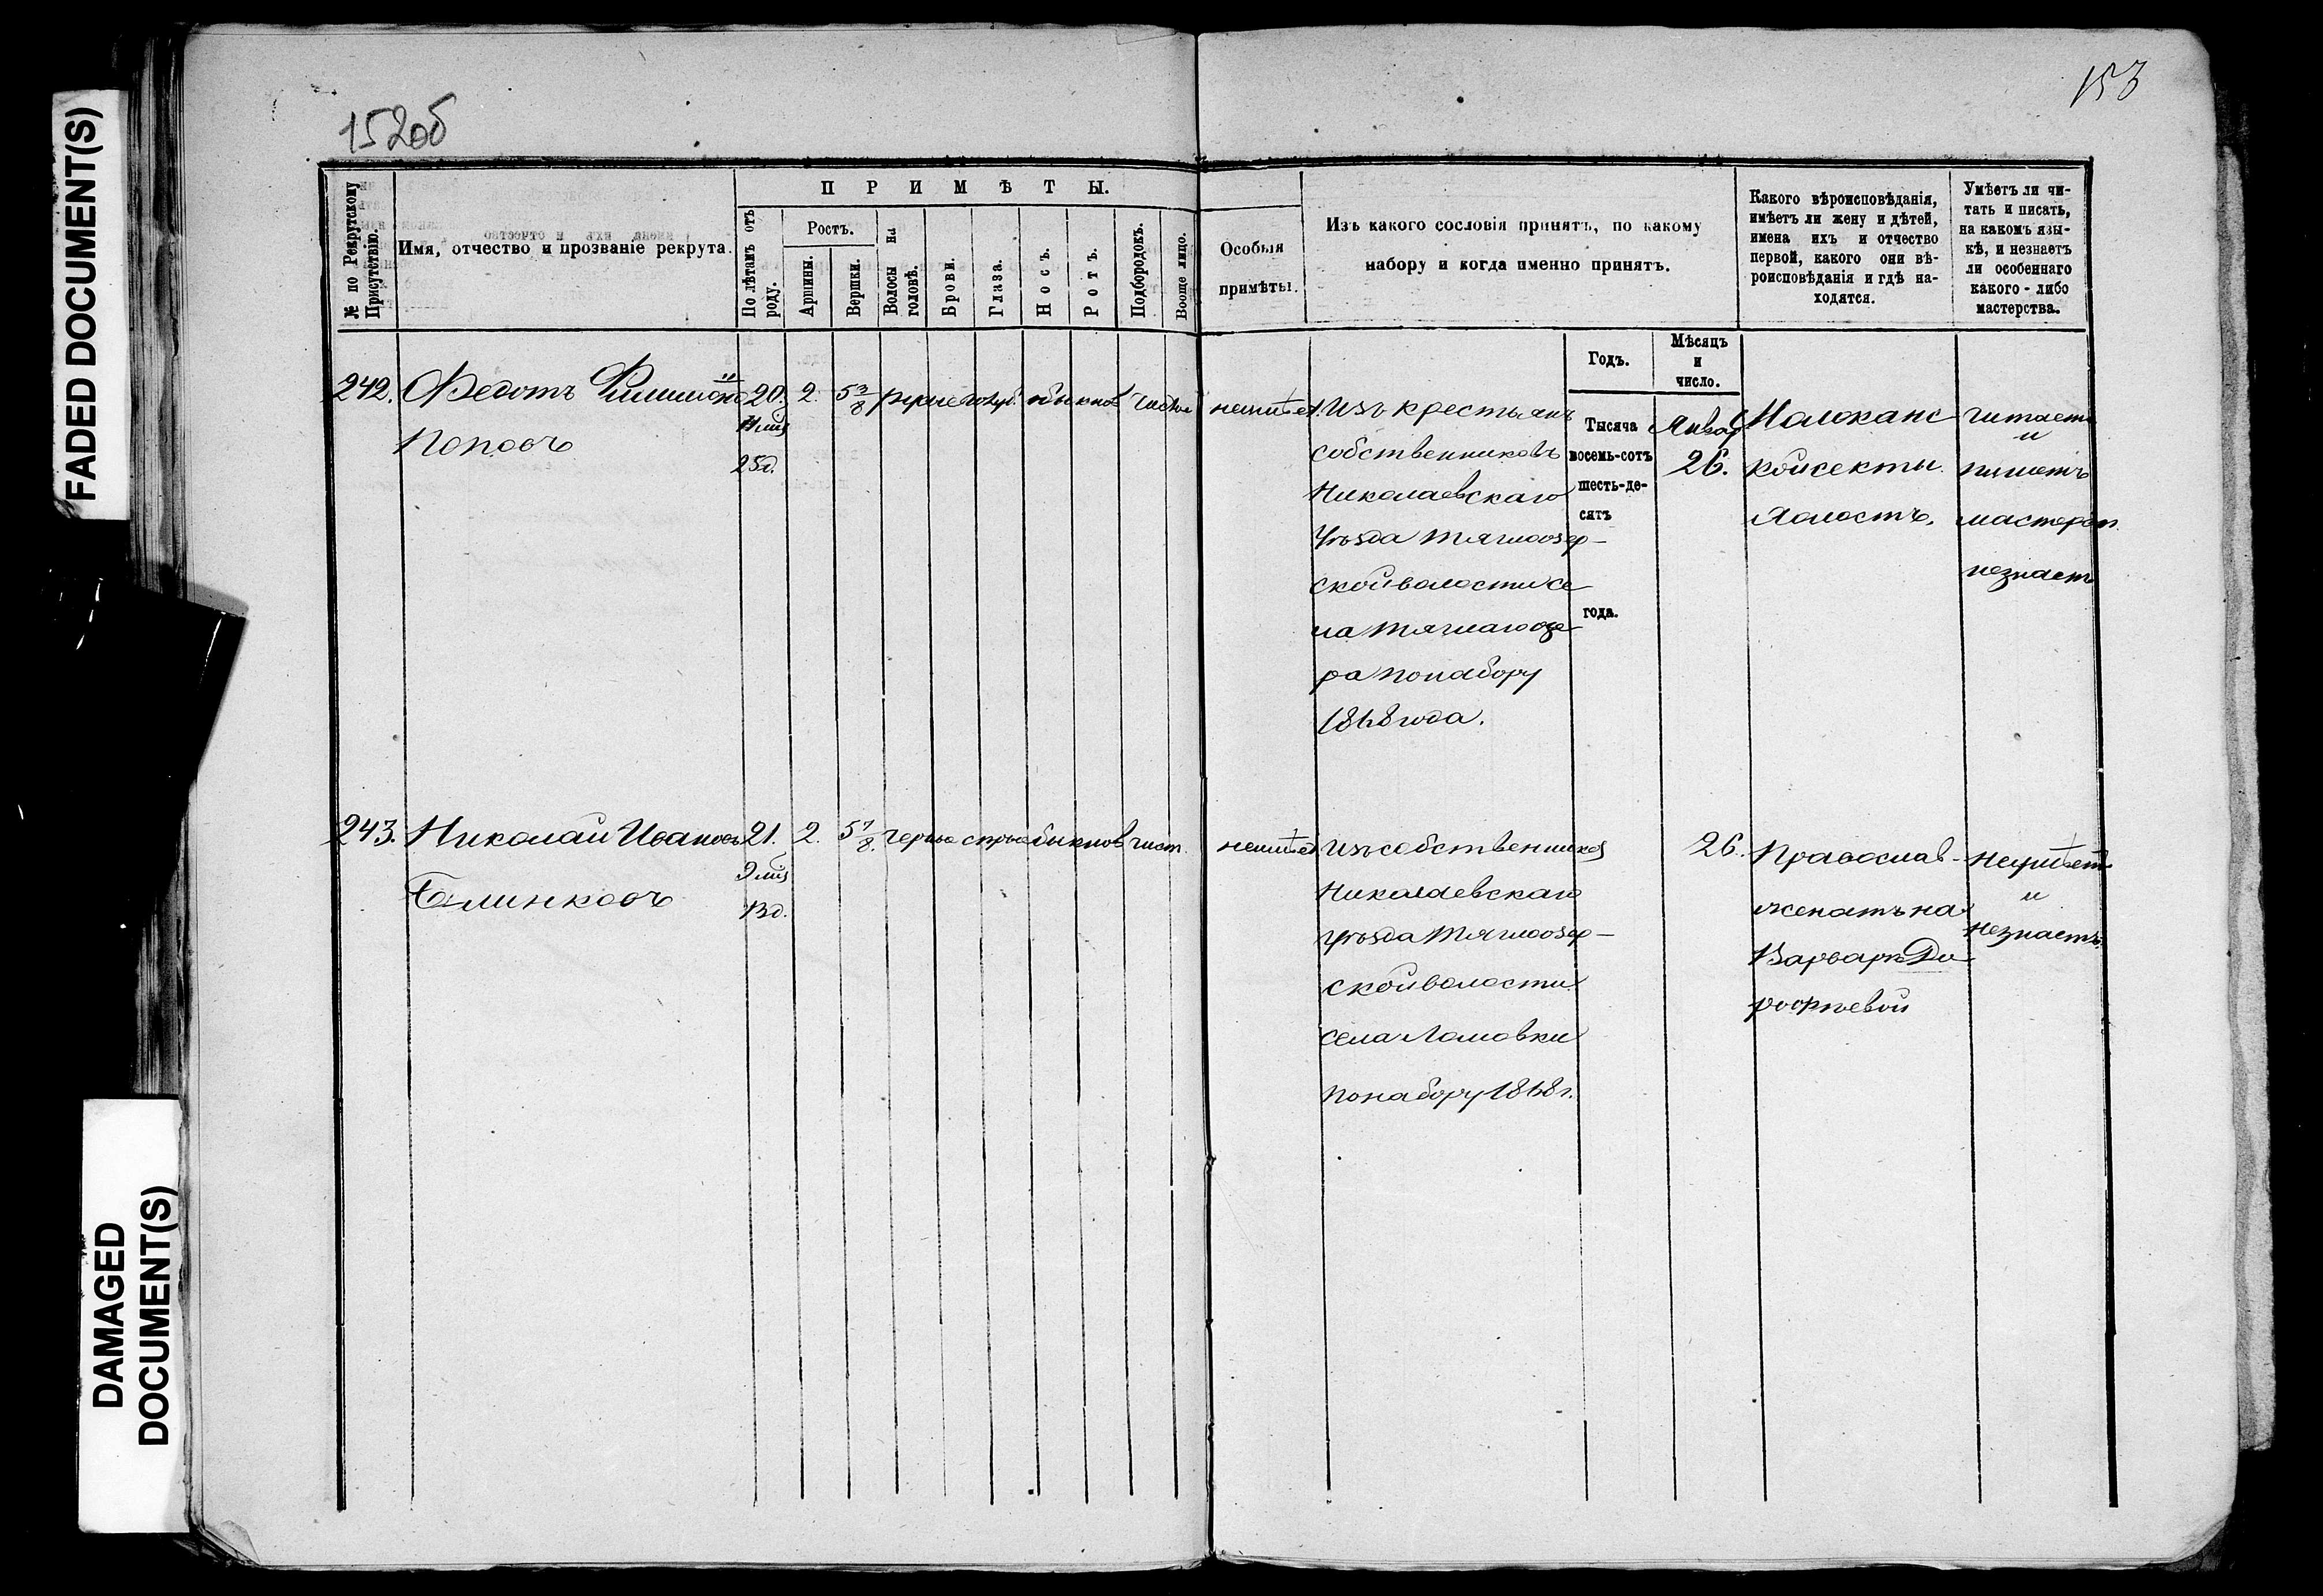 FADED DOCUMENT(S)
DAMAGED
DOCUMENT(S)
152об
153
№ по Рекрутскому
Присутствію.
Имя, отчество и прозваніе рекрута.
ПРИМѢТЫ.
По лѣтамъ отъ
роду.
Ростъ.
Аршины.
Вершки.
Волосы на
головѣ.
Брови.
Глаза.
Носъ.
Ротъ.
Подбородокъ.
Вооще лицо.
Особыя
примѣты.
Изъ какого сословія принятъ, по какому
набору и когда именно принятъ.
Какого вѣроисповѣданія,
имѣетъ ли жену и дѣтей,
имена ихъ и отчество
первой, какого они вѣ-
роисповѣданія и гдѣ на-
ходятся.
Умѣетъ ли чи-
тать и писать,
на какомъ язы-
кѣ, и незнаетъ
ли особеннаго
какого-либо
мастерства.
Годъ.
Мѣсяцъ
и
число.
Тысяча
восемь-сотъ
шесть-де-
сятъ
года.
242. Федотъ
Поповъ
20.
25д.
2. 5 3/8 обыкнов чистое
неимѣет
Изъ крестьянъ
собственниковъ
Николаевскаго
Уѣзда Тяглоозер-
ской волости се
ла Тяглаго озе
ра по набору
1868 года.
Январ
26.
Молоканс
кой секты.
Холостъ.
читаетъ
и
пишетъ
мастерст
незнаетъ
243. Николай Ивановъ
Блинковъ
21.
9 мѣс
13д.
2. 5 7/8 черные обыкнов чист.
неимѣет
Изъ собственников
Николаевскаго
уѣзда Тяглоозер-
ской волости
села Ломовки
по набору 1868 г.
26.
Православ-
женатъ на
Варваре До
рофѣевой
Неумѣетъ
и
Незнаетъ.